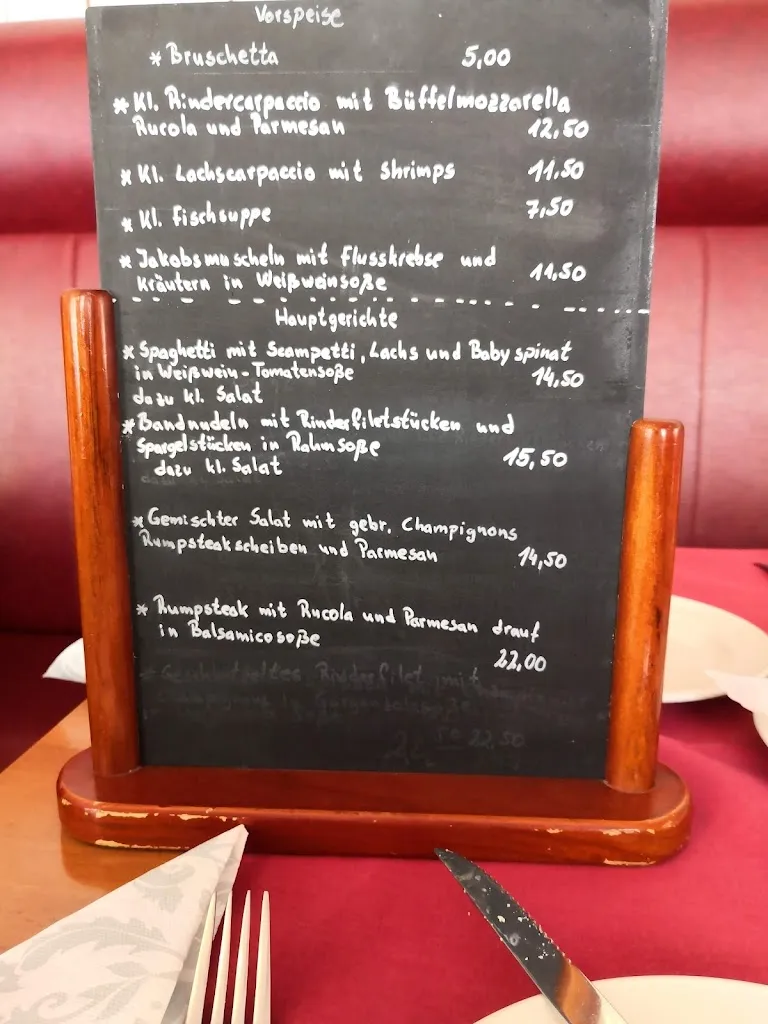 Vorspeise
* Bruschetta 5,00
* Kl. Rindercarpaccio mit Büffelmozzarella
Rucola und Parmesan 12,50
* Kl. Lachscarpaccio mit Shrimps 11,50
* Kl. Fischsuppe 7,50
* Jakobsmuscheln mit Flusskrebse und
Kräutern in Weißweinsoße 11,50
Hauptgerichte
* Spaghetti mit Scampetti, Lachs und Baby spinat
in Weißwein-Tomatensoße 14,50
dazu kl. Salat
* Bandnudeln mit Rinderfiletstücken und
Spargelstücken in Rahmsoße 15,50
dazu kl. Salat
* Gemischter Salat mit gebr. Champignons
Rumpsteakscheiben und Parmesan 14,50
* Rumpsteak mit Rucola und Parmesan drauf
in Balsamicosoße
22,00
* Geschnetzeltes Rinderfilet mit
22,50